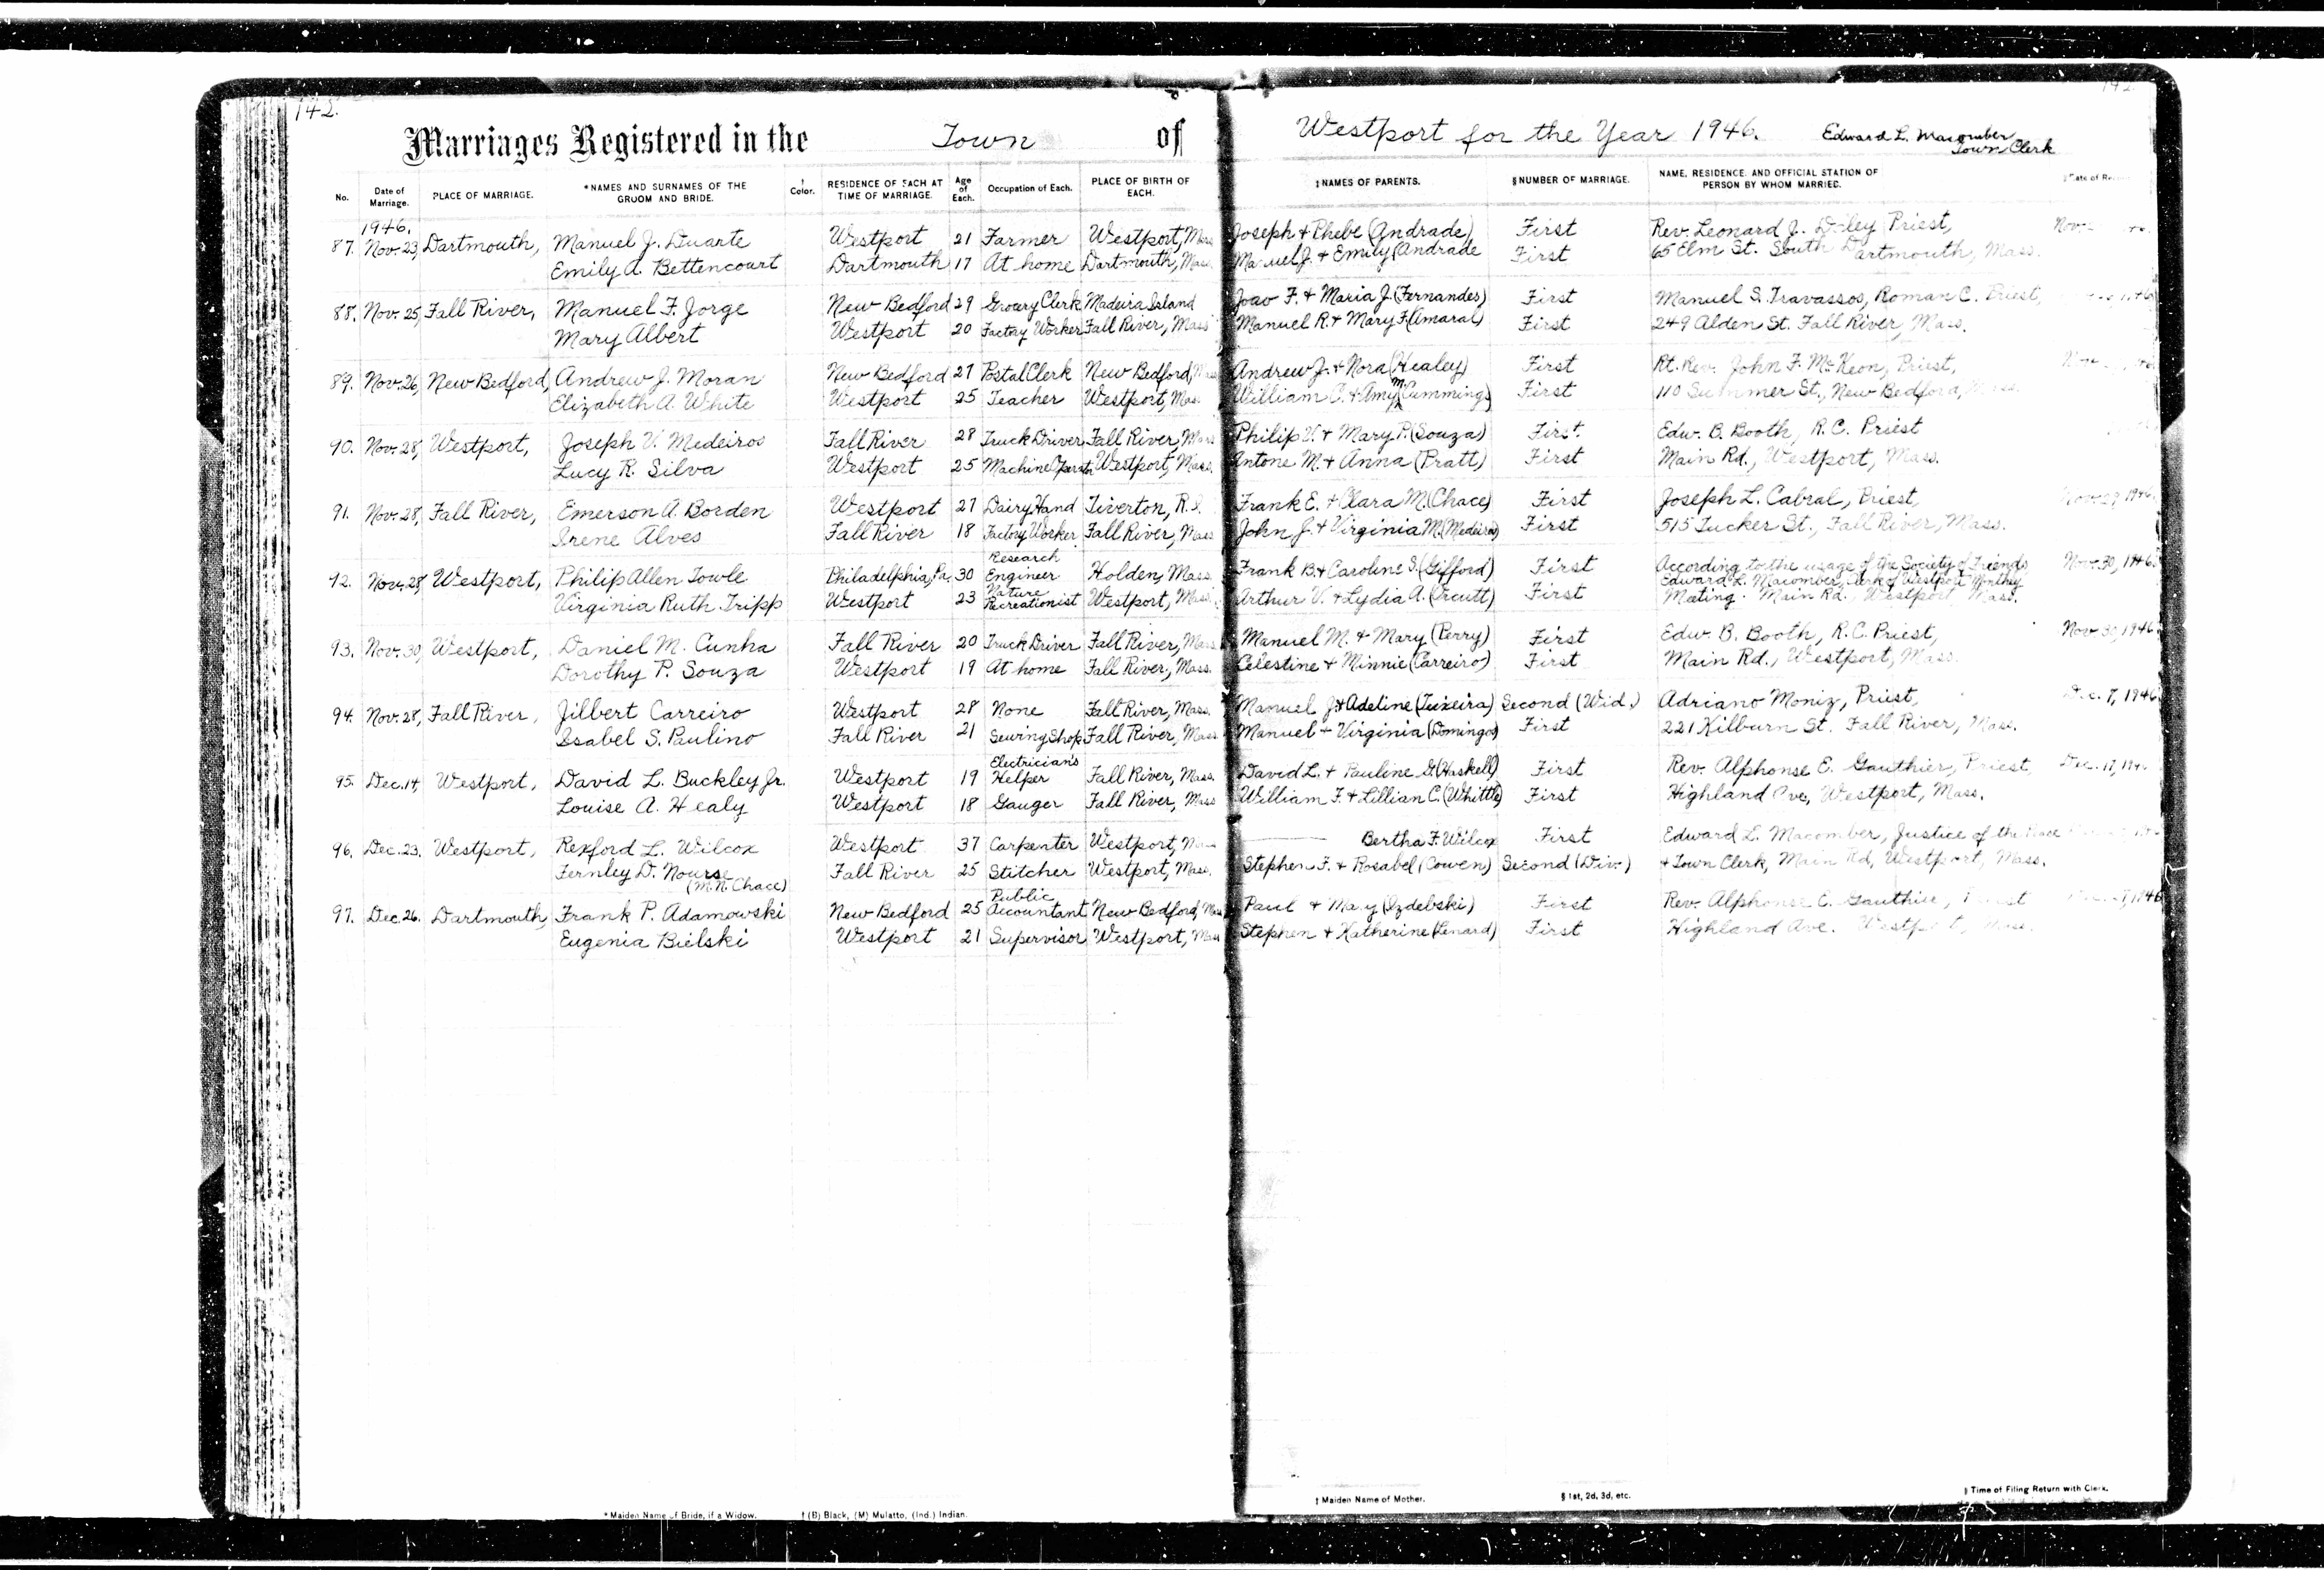 142.
Marriages Registered in the Town of Westport for the Year 1946. Edward L. Macomber
Town Clerk
No. Date of Marriage. PLACE OF MARRIAGE. *NAMES AND SURNAMES OF THE GROOM AND BRIDE. † Color. RESIDENCE OF EACH AT TIME OF MARRIAGE. Age of Each. Occupation of Each. PLACE OF BIRTH OF EACH. ‡NAMES OF PARENTS. §NUMBER OF MARRIAGE. NAME, RESIDENCE, AND OFFICIAL STATION OF PERSON BY WHOM MARRIED. Date of
1946.
87. Nov. 23, Dartmouth, Manuel J. Duarte Westport 21 Farmer Westport, Mass. Joseph & Phebe (Andrade) First Rev. Leonard J. Daley Priest, Nov.
Emily A. Bettencourt Dartmouth 17 At home Dartmouth, Mass. Manuel J. & Emily (Andrade First 65 Elm St. South Dartmouth, Mass.
88. Nov. 25, Fall River, Manuel F. Jorge New Bedford 29 Grocery Clerk Madeira Island Joao F. & Maria J. (Fernandes) First Manuel S. Travassos, Roman C. Priest, 1946
Mary Albert Westport 20 Factory Worker Fall River, Mass Manuel R. & Mary F. (Amaral) First 249 Alden St. Fall River, Mass.
89. Nov. 26, New Bedford, Andrew J. Moran New Bedford 27 Postal Clerk New Bedford, Mass Andrew J. & Nora (Healey) First Rt. Rev. John F. McKeon, Priest,
Elizabeth A. White Westport 25 Teacher Westport, Mass. William C. & Amy M. (Cummings) First 110 Summer St., New Bedford, Mass.
90. Nov. 28, Westport, Joseph V. Medeiros Fall River 28 Truck Driver Fall River, Mass Philip V. & Mary P. (Souza) First. Edw. B. Booth, R.C. Priest
Lucy R. Silva Westport 25 Machine Operator Westport, Mass. Antone M. & Anna (Pratt) First Main Rd., Westport, Mass.
91. Nov. 28, Fall River, Emerson A. Borden Westport 27 Dairy Hand Tiverton, R.I. Frank E. & Clara M. (Chace) First Joseph L. Cabral, Priest, Nov. 29, 1946.
Irene Alves Fall River 18 Factory Worker Fall River, Mass John J. & Virginia M. (Medeiros) First 515 Tucker St., Fall River, Mass.
92. Nov. 28, Westport, Philip Allen Towle Philadelphia, Pa. 30 Research Engineer Holden, Mass. Frank B. & Caroline S. (Gifford) First According to the usage of the Society of Friends Nov. 30, 1946.
Edward L. Macomber, Clerk of Westport Monthly
Virginia Ruth Tripp Westport 23 Nature Recreationist Westport, Mass. Arthur V. & Lydia A. (Orcutt) First Meeting. Main Rd., Westport Mass.
93. Nov. 30, Westport, Daniel M. Cunha Fall River 20 Truck Driver Fall River, Mass. Manuel M. & Mary (Perry) First Edw. B. Booth, R.C. Priest, Nov. 30, 1946.
Dorothy P. Souza Westport 19 At home Fall River, Mass. Celestine & Minnie (Carreiro) First Main Rd., Westport, Mass.
94. Nov. 28, Fall River, Jilbert Carreiro Westport 28 None Fall River, Mass. Manuel J. & Adeline (Teixeira) Second (Wid.) Adriano Moniz, Priest, Dec. 7, 1946
Isabel S. Paulino Fall River 21 Sewing Shop Fall River, Mass Manuel & Virginia (Domingos) First 221 Kilburn St. Fall River, Mass.
95. Dec. 14, Westport, David L. Buckley Jr. Westport 19 Electrician's Helper Fall River, Mass. David L. & Pauline G. (Haskell) First Rev. Alphonse E. Gauthier, Priest Dec. 17, 194
Louise A. Healy Westport 18 Gauger Fall River, Mass William F. & Lillian C. (Whittle) First Highland Ave, Westport, Mass.
96. Dec. 23. Westport, Rexford L. Wilcox Westport 37 Carpenter Westport, Bertha F. Wilcox First Edward L. Macomber, Justice of the Peace
Fernley D. Nourse Fall River 25 Stitcher Westport, Mass. Stephen F. & Rosabel (Cowen) Second (Div.) & Town Clerk, Main Rd, Westport, Mass.
(M.N. Chace)
97. Dec. 26. Dartmouth, Frank P. Adamowski New Bedford 25 Public Accountant New Bedford, Mass Paul & Mary (Izdebski) First Rev. Alphonse E. Gauthier, Priest 1946
Eugenia Bielski Westport 21 Supervisor Westport, Mass Stephen & Katherine (Lenard) First Highland Ave. Westport, Mass.
*Maiden Name of Bride, if a Widow. † (B) Black, (M) Mulatto, (Ind.) Indian. ‡ Maiden Name of Mother. § 1st, 2d, 3d, etc. ‖ Time of Filing Return with Clerk.